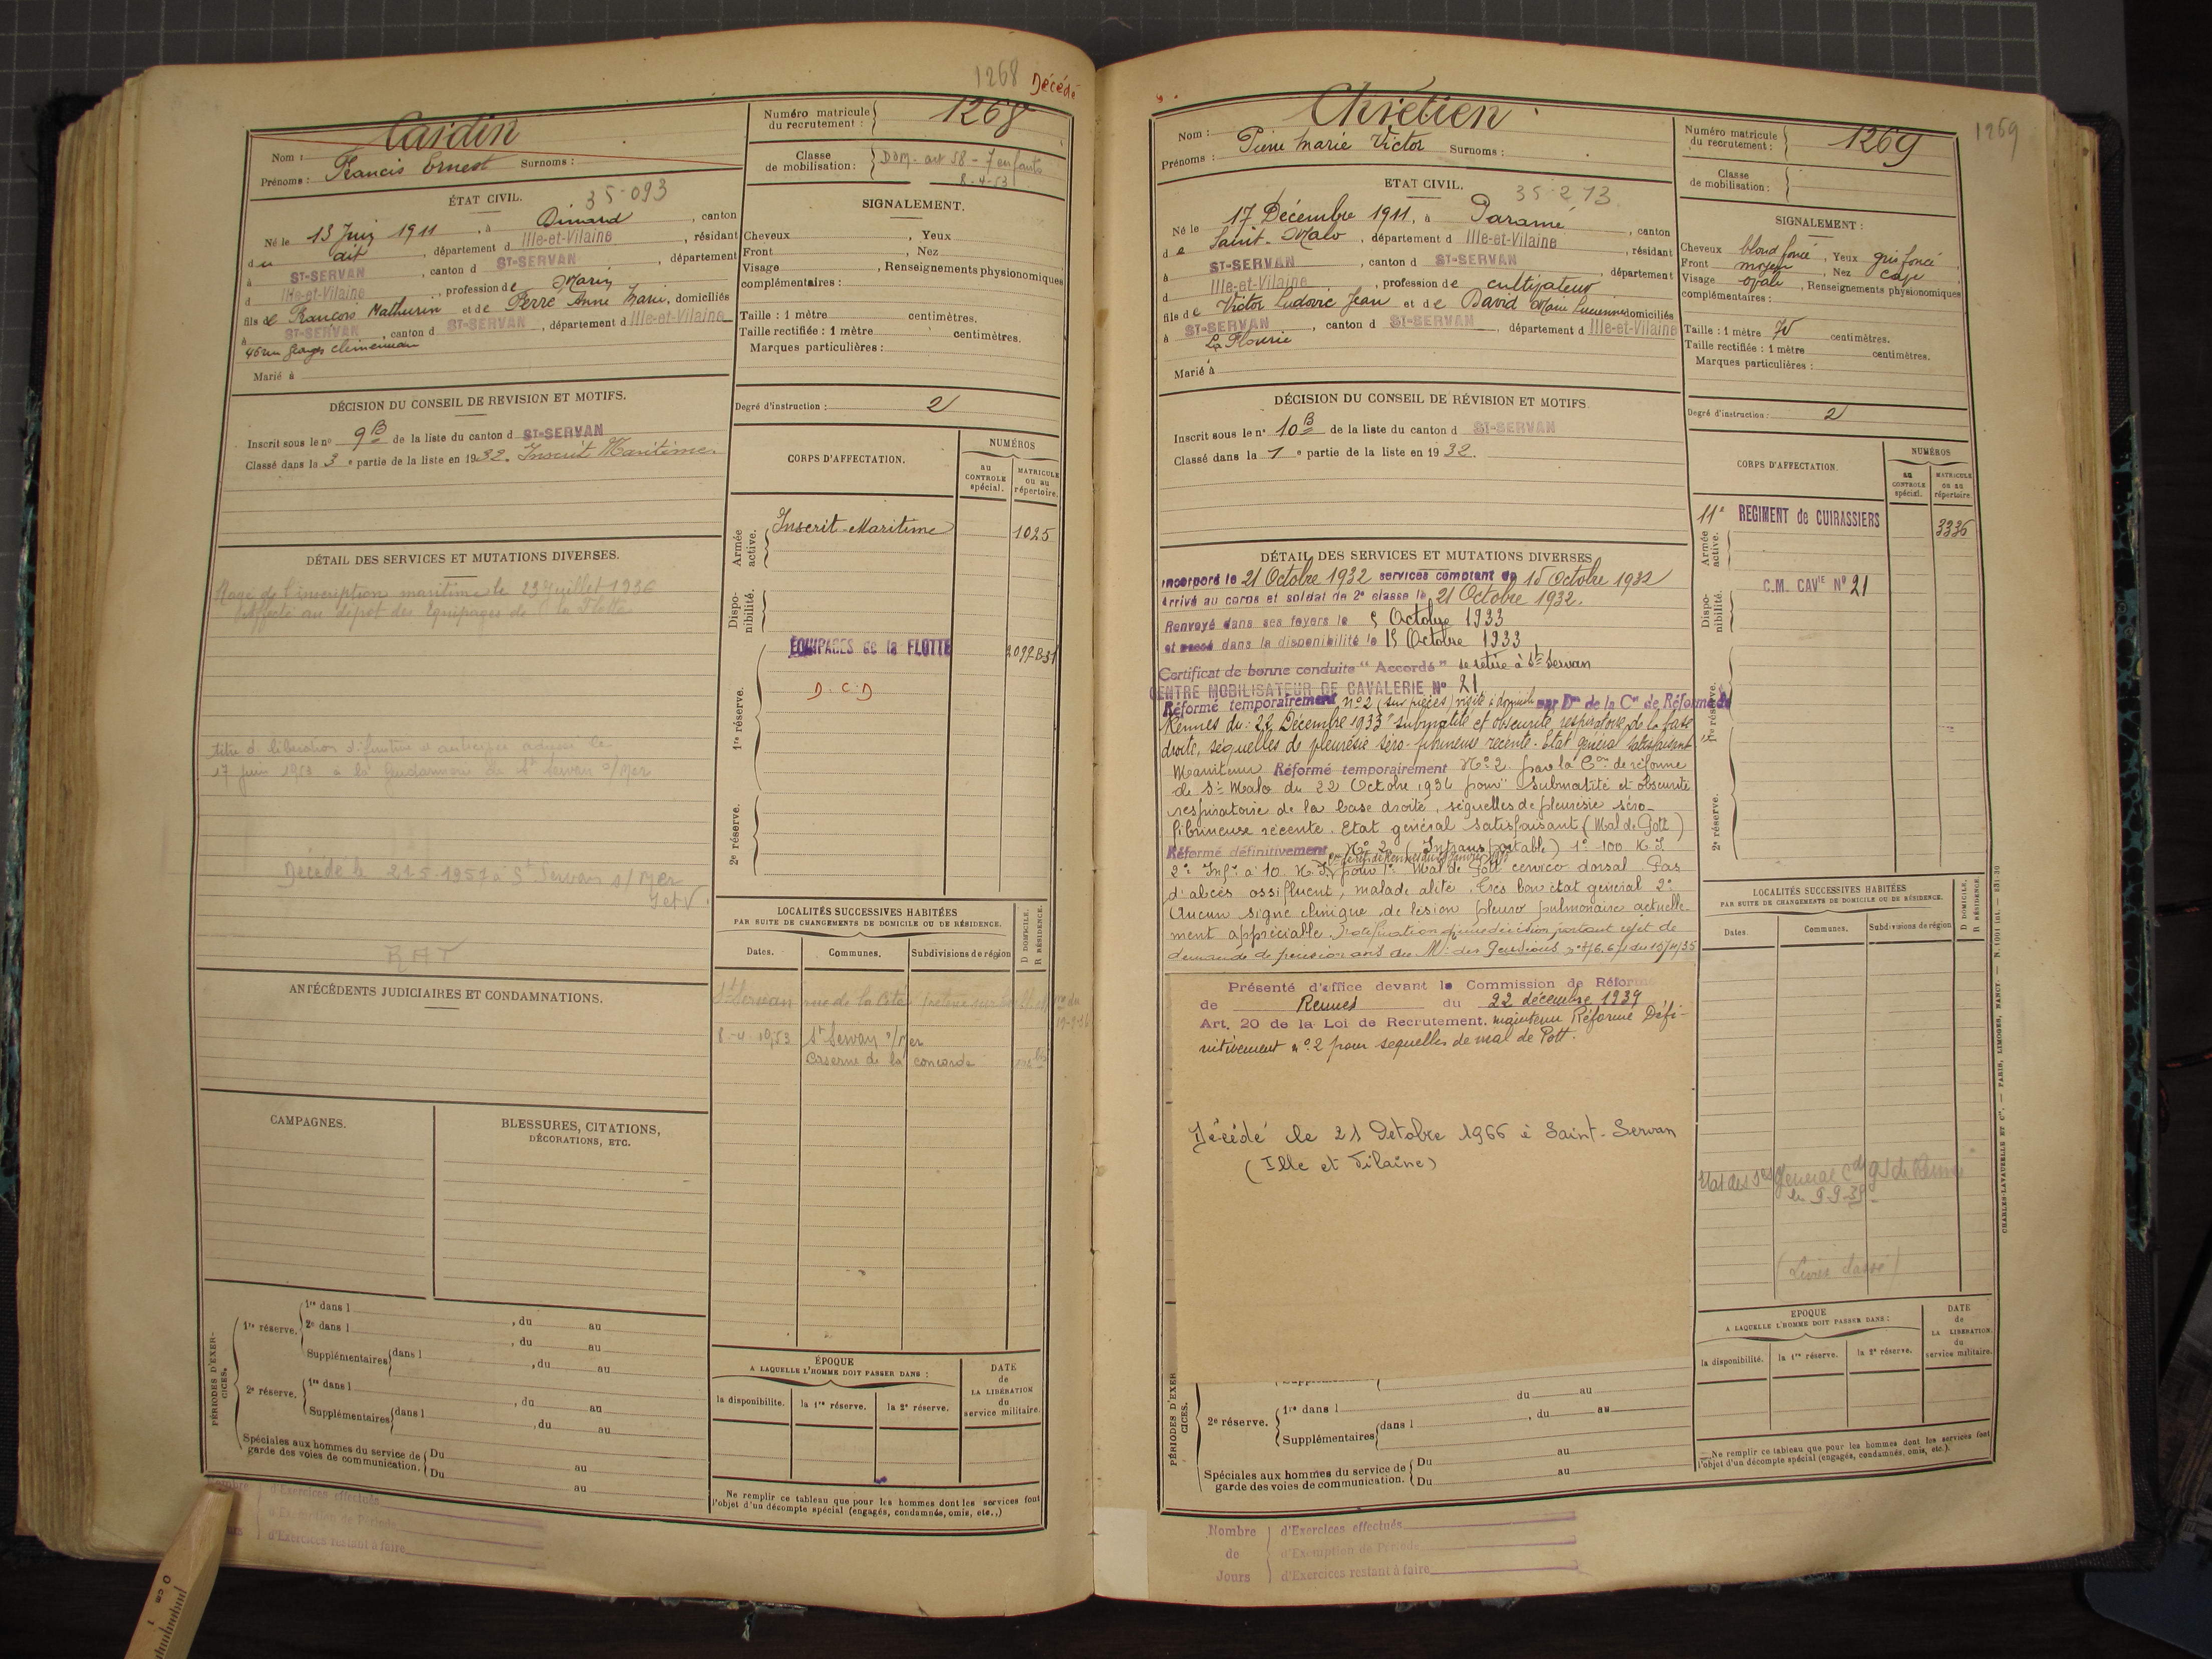 1268 Décédé
Nom : Cardin
Prénoms : Francis Ernest Surnoms :
Numéro matricule du recrutement : 1268
Classe de mobilisation : DOM. art 58 - 7 enfants
8-4-53
ÉTAT CIVIL. 35-093
Né le 13 Juin 1911, à Dinard, canton
du dit, département d Ille-et-Vilaine, résidant
à ST-SERVAN, canton d ST-SERVAN, département
d Ille-et-Vilaine, profession de Marin
fils de François Mathurin et de Perre Anne Marie, domiciliés
à ST-SERVAN canton d ST-SERVAN, département d Ille-et-Vilaine
46 rue Georges Clemenceau
Marié à
SIGNALEMENT.
Cheveux , Yeux
Front , Nez
Visage , Renseignements physionomiques
complémentaires :
Taille : 1 mètre centimètres.
Taille rectifiée : 1 mètre centimètres.
Marques particulières :
DÉCISION DU CONSEIL DE REVISION ET MOTIFS.
Inscrit sous le nº 9 B de la liste du canton d ST-SERVAN
Classé dans la 3 e partie de la liste en 1932. Inscrit Maritime.
Degré d'instruction : 2
CORPS D'AFFECTATION.
NUMÉROS
au CONTROLE spécial.
MATRICULE ou au répertoire.
Armée active.
Inscrit Maritime 1025
Disponibilité.
1re réserve.
ÉQUIPAGES de la FLOTTE 2097-B-31
D.C.D
2e réserve.
DÉTAIL DES SERVICES ET MUTATIONS DIVERSES.
Rayé de l'inscription maritime le 23 Juillet 1936
Affecté au dépôt des Equipages de la Flotte
titre de libération définitive et anticipée adressé le
17 juin 1953 à la Gendarmerie de St Servan s/Mer
Décédé le 21-5-1957 à St Servan s/Mer
I et V.
RAT
ANTÉCÉDENTS JUDICIAIRES ET CONDAMNATIONS.
LOCALITÉS SUCCESSIVES HABITÉES
PAR SUITE DE CHANGEMENTS DE DOMICILE OU DE RÉSIDENCE.
D DOMICILE.
R RÉSIDENCE.
Dates. Communes. Subdivisions de région
St Servan rue de la Cité
8-4-1953 St Servan s/Mer
Caserne de la concorde
CAMPAGNES.
BLESSURES, CITATIONS,
DÉCORATIONS, ETC.
PÉRIODES D'EXERCICES.
1re réserve. 1re dans l , du au
2e dans l , du au
Supplémentaires dans l , du au
2e réserve. 1re dans l , du au
Supplémentaires dans l , du au
Spéciales aux hommes du service de garde des voies de communication. Du au
Du au
ÉPOQUE
A LAQUELLE L'HOMME DOIT PASSER DANS :
la disponibilité. la 1re réserve. la 2e réserve.
DATE de LA LIBÉRATION du service militaire.
Ne remplir ce tableau que pour les hommes dont les services font
l'objet d'un décompte spécial (engagés, condamnés, omis, etc.,)
Nombre d'Exercices effectués
d'Exemption de Période
Jours d'Exercices restant à faire
1269
Nom : Chrétien
Prénoms : Pierre Marie Victor Surnoms :
Numéro matricule du recrutement : 1269
Classe de mobilisation :
ETAT CIVIL. 35-273
Né le 17 Décembre 1911, à Paramé, canton
de Saint-Malo, département d Ille-et-Vilaine, résidant
à ST-SERVAN, canton d ST-SERVAN, département
d Ille-et-Vilaine, profession de cultivateur
fils de Victor Ludovic Jean et de David Marie Lucienne domiciliés
à ST-SERVAN, canton d ST-SERVAN, département d Ille-et-Vilaine
La Flourie
Marié à
SIGNALEMENT :
Cheveux blond foncé, Yeux gris foncé
Front moyen, Nez cave
Visage ovale, Renseignements physionomiques
complémentaires :
Taille : 1 mètre 70 centimètres.
Taille rectifiée : 1 mètre centimètres.
Marques particulières :
DÉCISION DU CONSEIL DE RÉVISION ET MOTIFS
Inscrit sous le nº 10 B de la liste du canton d ST-SERVAN
Classé dans la 1 e partie de la liste en 1932.
Degré d'instruction : 2
CORPS D'AFFECTATION.
NUMÉROS
au CONTROLE spécial.
MATRICULE ou au répertoire.
Armée active.
11e REGIMENT de CUIRASSIERS 3336
Disponibilité.
C.M. CAVIE Nº 21
1re réserve.
2e réserve.
DÉTAIL DES SERVICES ET MUTATIONS DIVERSES
Incorporé le 21 Octobre 1932 services comptant du 15 Octobre 1932
Arrivé au corps et soldat de 2e classe le 21 Octobre 1932.
Renvoyé dans ses foyers le 5 Octobre 1933
et passé dans la disponibilité le 15 Octobre 1933
Certificat de bonne conduite "Accordé" se retire à St Servan
CENTRE MOBILISATEUR DE CAVALERIE Nº 21
Réformé temporairement nº 2 (sur pièces) visité à domicile par Don de la Con de Réforme de
Rennes du : 22 Décembre 1933 "submatité et obscurité respiratoire de la base
droite, séquelles de pleurésie séro-fibrineuse récente. Etat général satisfaisant"
Maintenu Réformé temporairement Nº 2. par la Con de réforme
de St Malo du 22 Octobre 1934 pour "Submatité et obscurité
respiratoire de la base droite, séquelles de pleurésie séro-
fibrineuse récente. Etat général satisfaisant (Mal de Pott)
Réformé définitivement Nº 2 (Intransportable) 1º 100
2º Infre à 10 pour 1º Mal de Pott cervico dorsal Pas
d'abcès ossifluent, malade alité. Très bon état général 2º
Aucun signe clinique de lésion pleuro pulmonaire actuelle-
ment appréciable. Notification d'une décision portant rejet de
demande de pension avis du Mr des Pensions
Présenté d'office devant la Commission de Réforme
de Rennes du 22 décembre 1939
Art. 20 de la Loi de Recrutement. maintenu Réformé Défi-
nitivement nº 2 pour sequelles de mal de Pott.
Décédé le 21 Octobre 1966 à Saint-Servan
(Ille et Vilaine)
LOCALITÉS SUCCESSIVES HABITÉES
PAR SUITE DE CHANGEMENTS DE DOMICILE OU DE RÉSIDENCE.
D DOMICILE.
R RÉSIDENCE.
Dates. Communes. Subdivisions de région
le 9-9-39
(Livret classé)
PÉRIODES D'EXERCICES.
du au
2e réserve. 1re dans l , du au
Supplémentaires dans l
Spéciales aux hommes du service de garde des voies de communication. Du au
Du au
EPOQUE
A LAQUELLE L'HOMME DOIT PASSER DANS :
la disponibilité. la 1re réserve. la 2e réserve.
DATE de LA LIBÉRATION du service militaire.
Ne remplir ce tableau que pour les hommes dont les services font
l'objet d'un décompte spécial (engagés, condamnés, omis, etc.).
Nombre d'Exercices effectués
de d'Exemption de Période
Jours d'Exercices restant à faire
CHARLES-LAVAUZELLE ET Cie. — PARIS, LIMOGES, NANCY. — N. 1001 101. — 831-30
0 cm 1